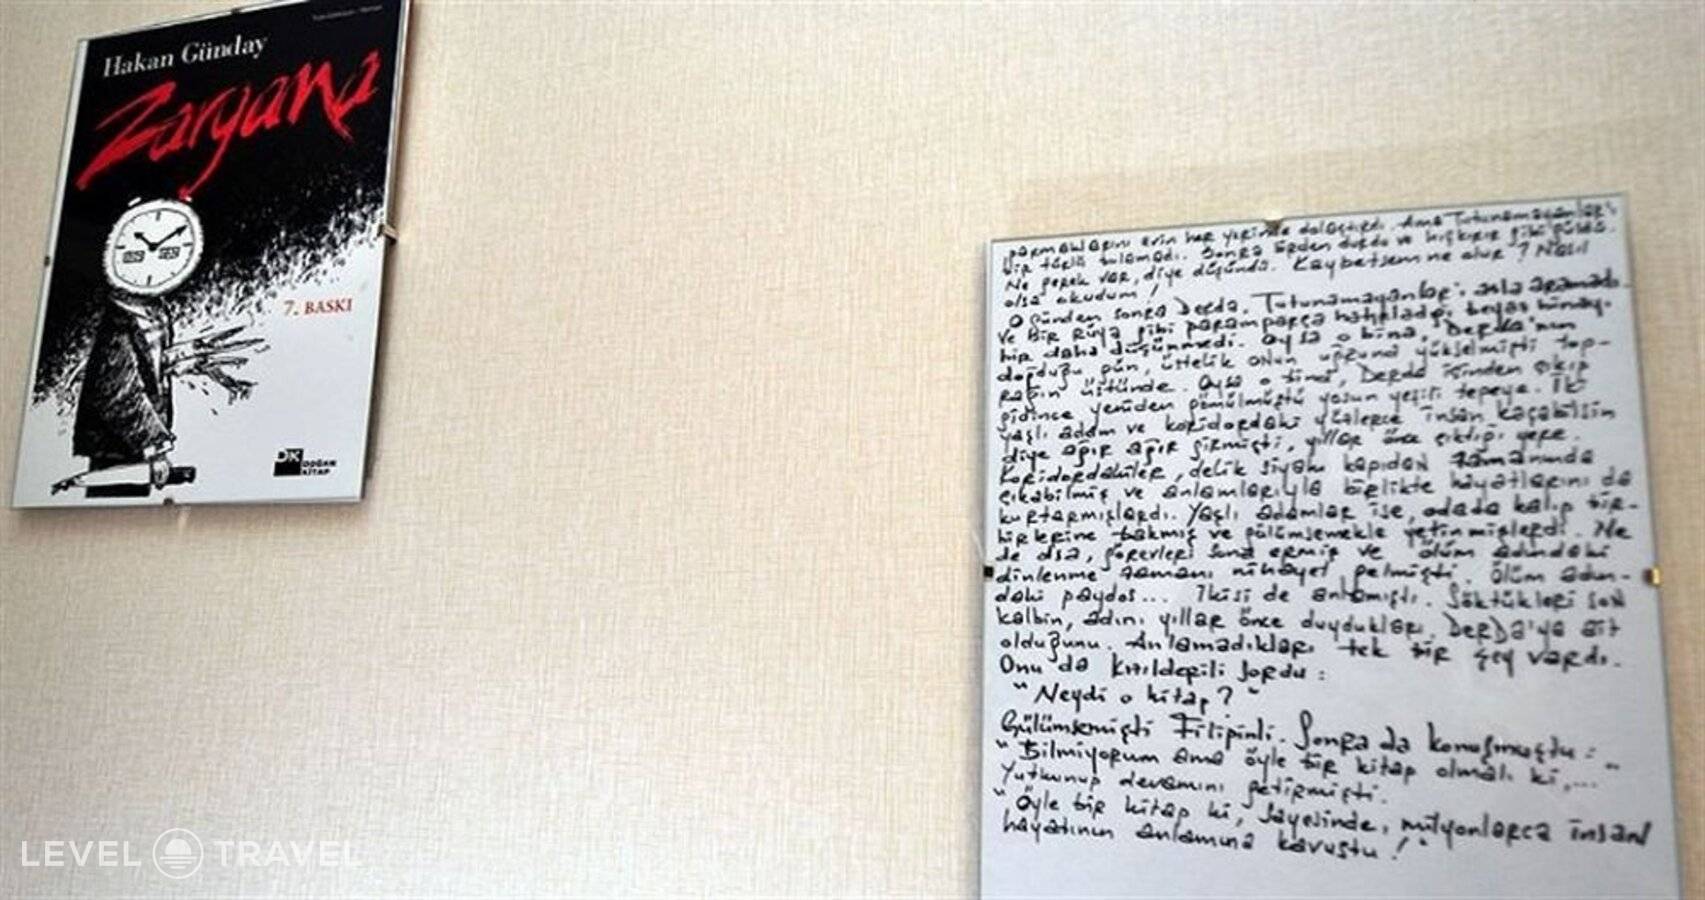 Hakan Günday
Zargana
7. BASKI
DK
DOĞAN
KİTAP
parmaklarını evin her yerinde dolaştırdı. Ama Tutunamayanlar'ı
bir türlü bulamadı. Sonra birden durdu ve hıçkırır gibi güldü.
Ne gerek var, diye düşündü. Kaybetsem ne olur? Nasıl
olsa okudum!
O günden sonra Derda, Tutunamayanlar'ı asla aramadı.
Ve bir rüya gibi paramparça hatırladığı beyaz binayı
bir daha düşünmedi. Oysa o bina, Derda'nın
doğduğu gün, üstelik onun uğruna yükselmişti top-
rağın üstünde. Oysa o bina, Derda içinden çıkıp
gidince yeniden gömülmüştü yosun yeşili tepeye. İki
yaşlı adam ve koridordaki yüzlerce insan kaçabilsin
diye ağır ağır girmişti, yıllar önce çıktığı yere.
Koridordakiler, delik siyahı kapıdan zamanında
çıkabilmiş ve anlamlarıyla birlikte hayatlarını da
kurtarmışlardı. Yaşlı adamlar ise, odada kalıp bir-
birlerine bakmış ve gülümsemekle yetinmişlerdi. Ne
de olsa, görevleri sona ermiş ve ölüm adındaki
dinlenme zamanı nihayet gelmişti. Ölüm adın-
daki paydos... İkisi de anlamıştı. Söktükleri son
kalbin, adını yıllar önce duydukları, Derda'ya ait
olduğunu. Anlamadıkları tek bir şey vardı.
Onu da Kızılderili sordu:
"Neydi o kitap?"
Gülümsemişti Filipinli. Sonra da konuşmuştu:
"Bilmiyorum ama öyle bir kitap olmalı ki,..."
Yutkunup devamını getirmişti.
"Öyle bir kitap ki, sayesinde, milyonlarca insan
hayatının anlamına kavuştu!"
LEVEL TRAVEL